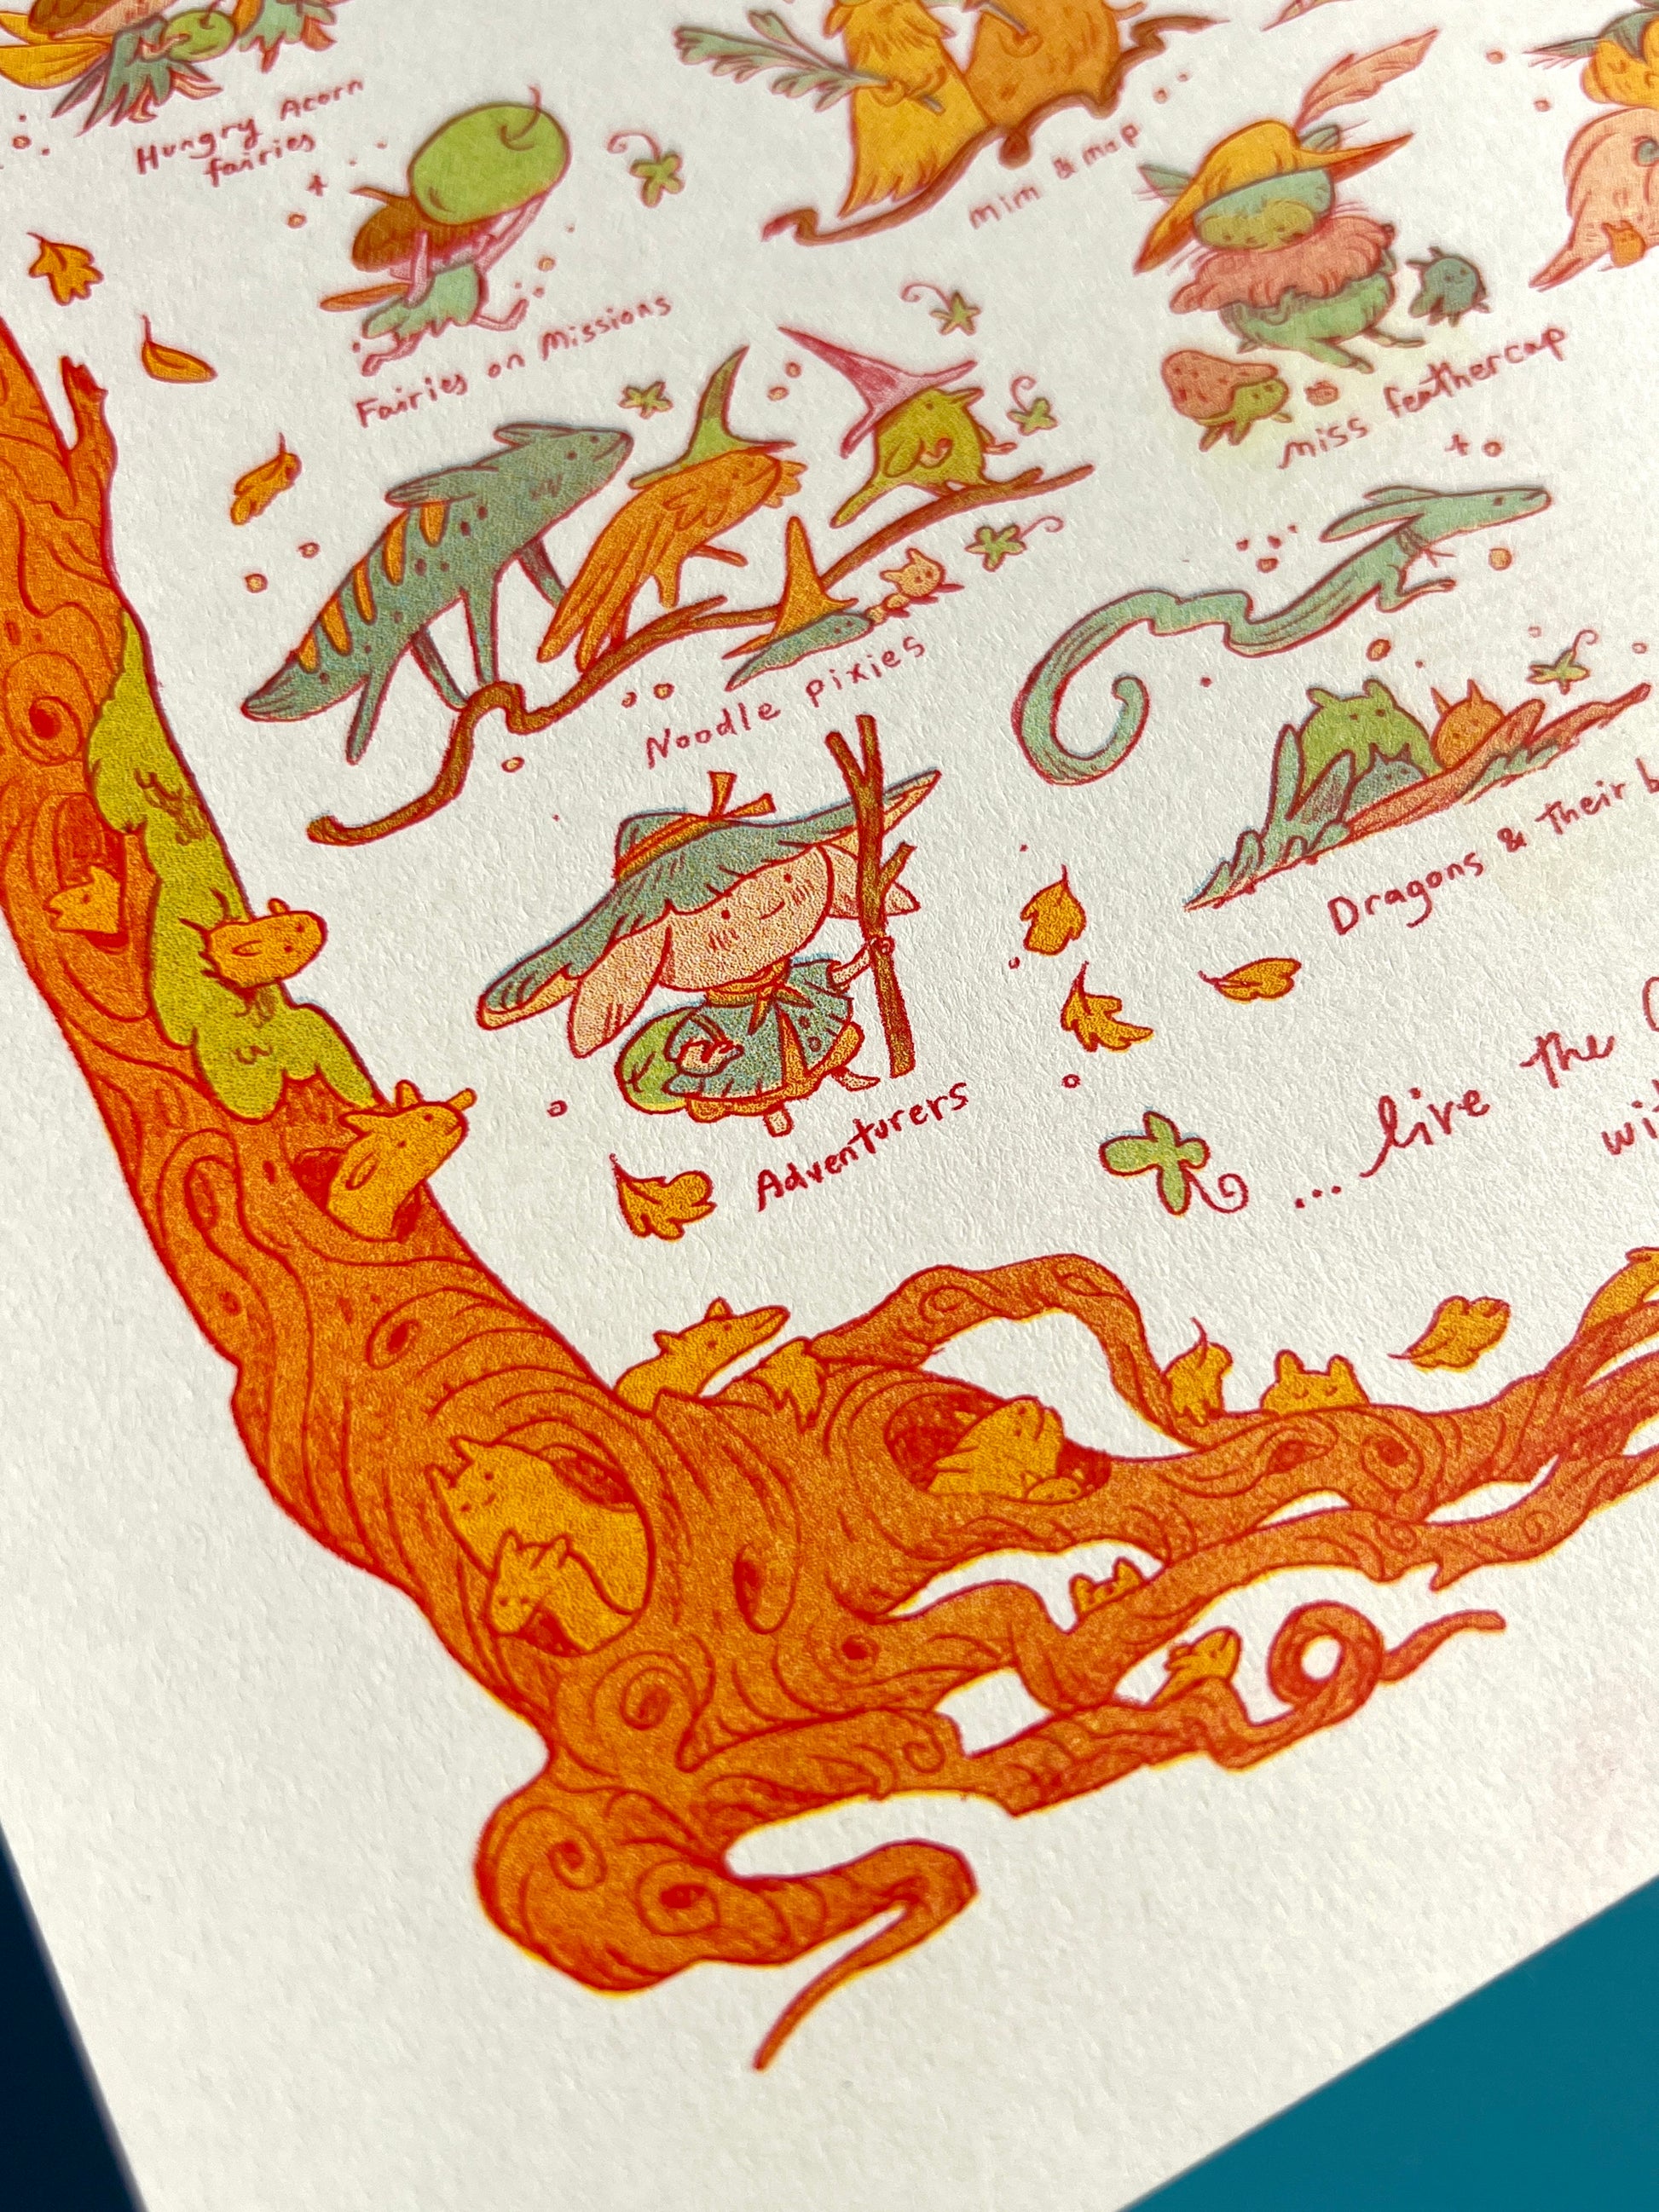 Hungry Acorn
fairies
mim & mop
Fairies on Missions
miss feathercap
Noodle pixies
Dragons & their
Adventurers
...live the